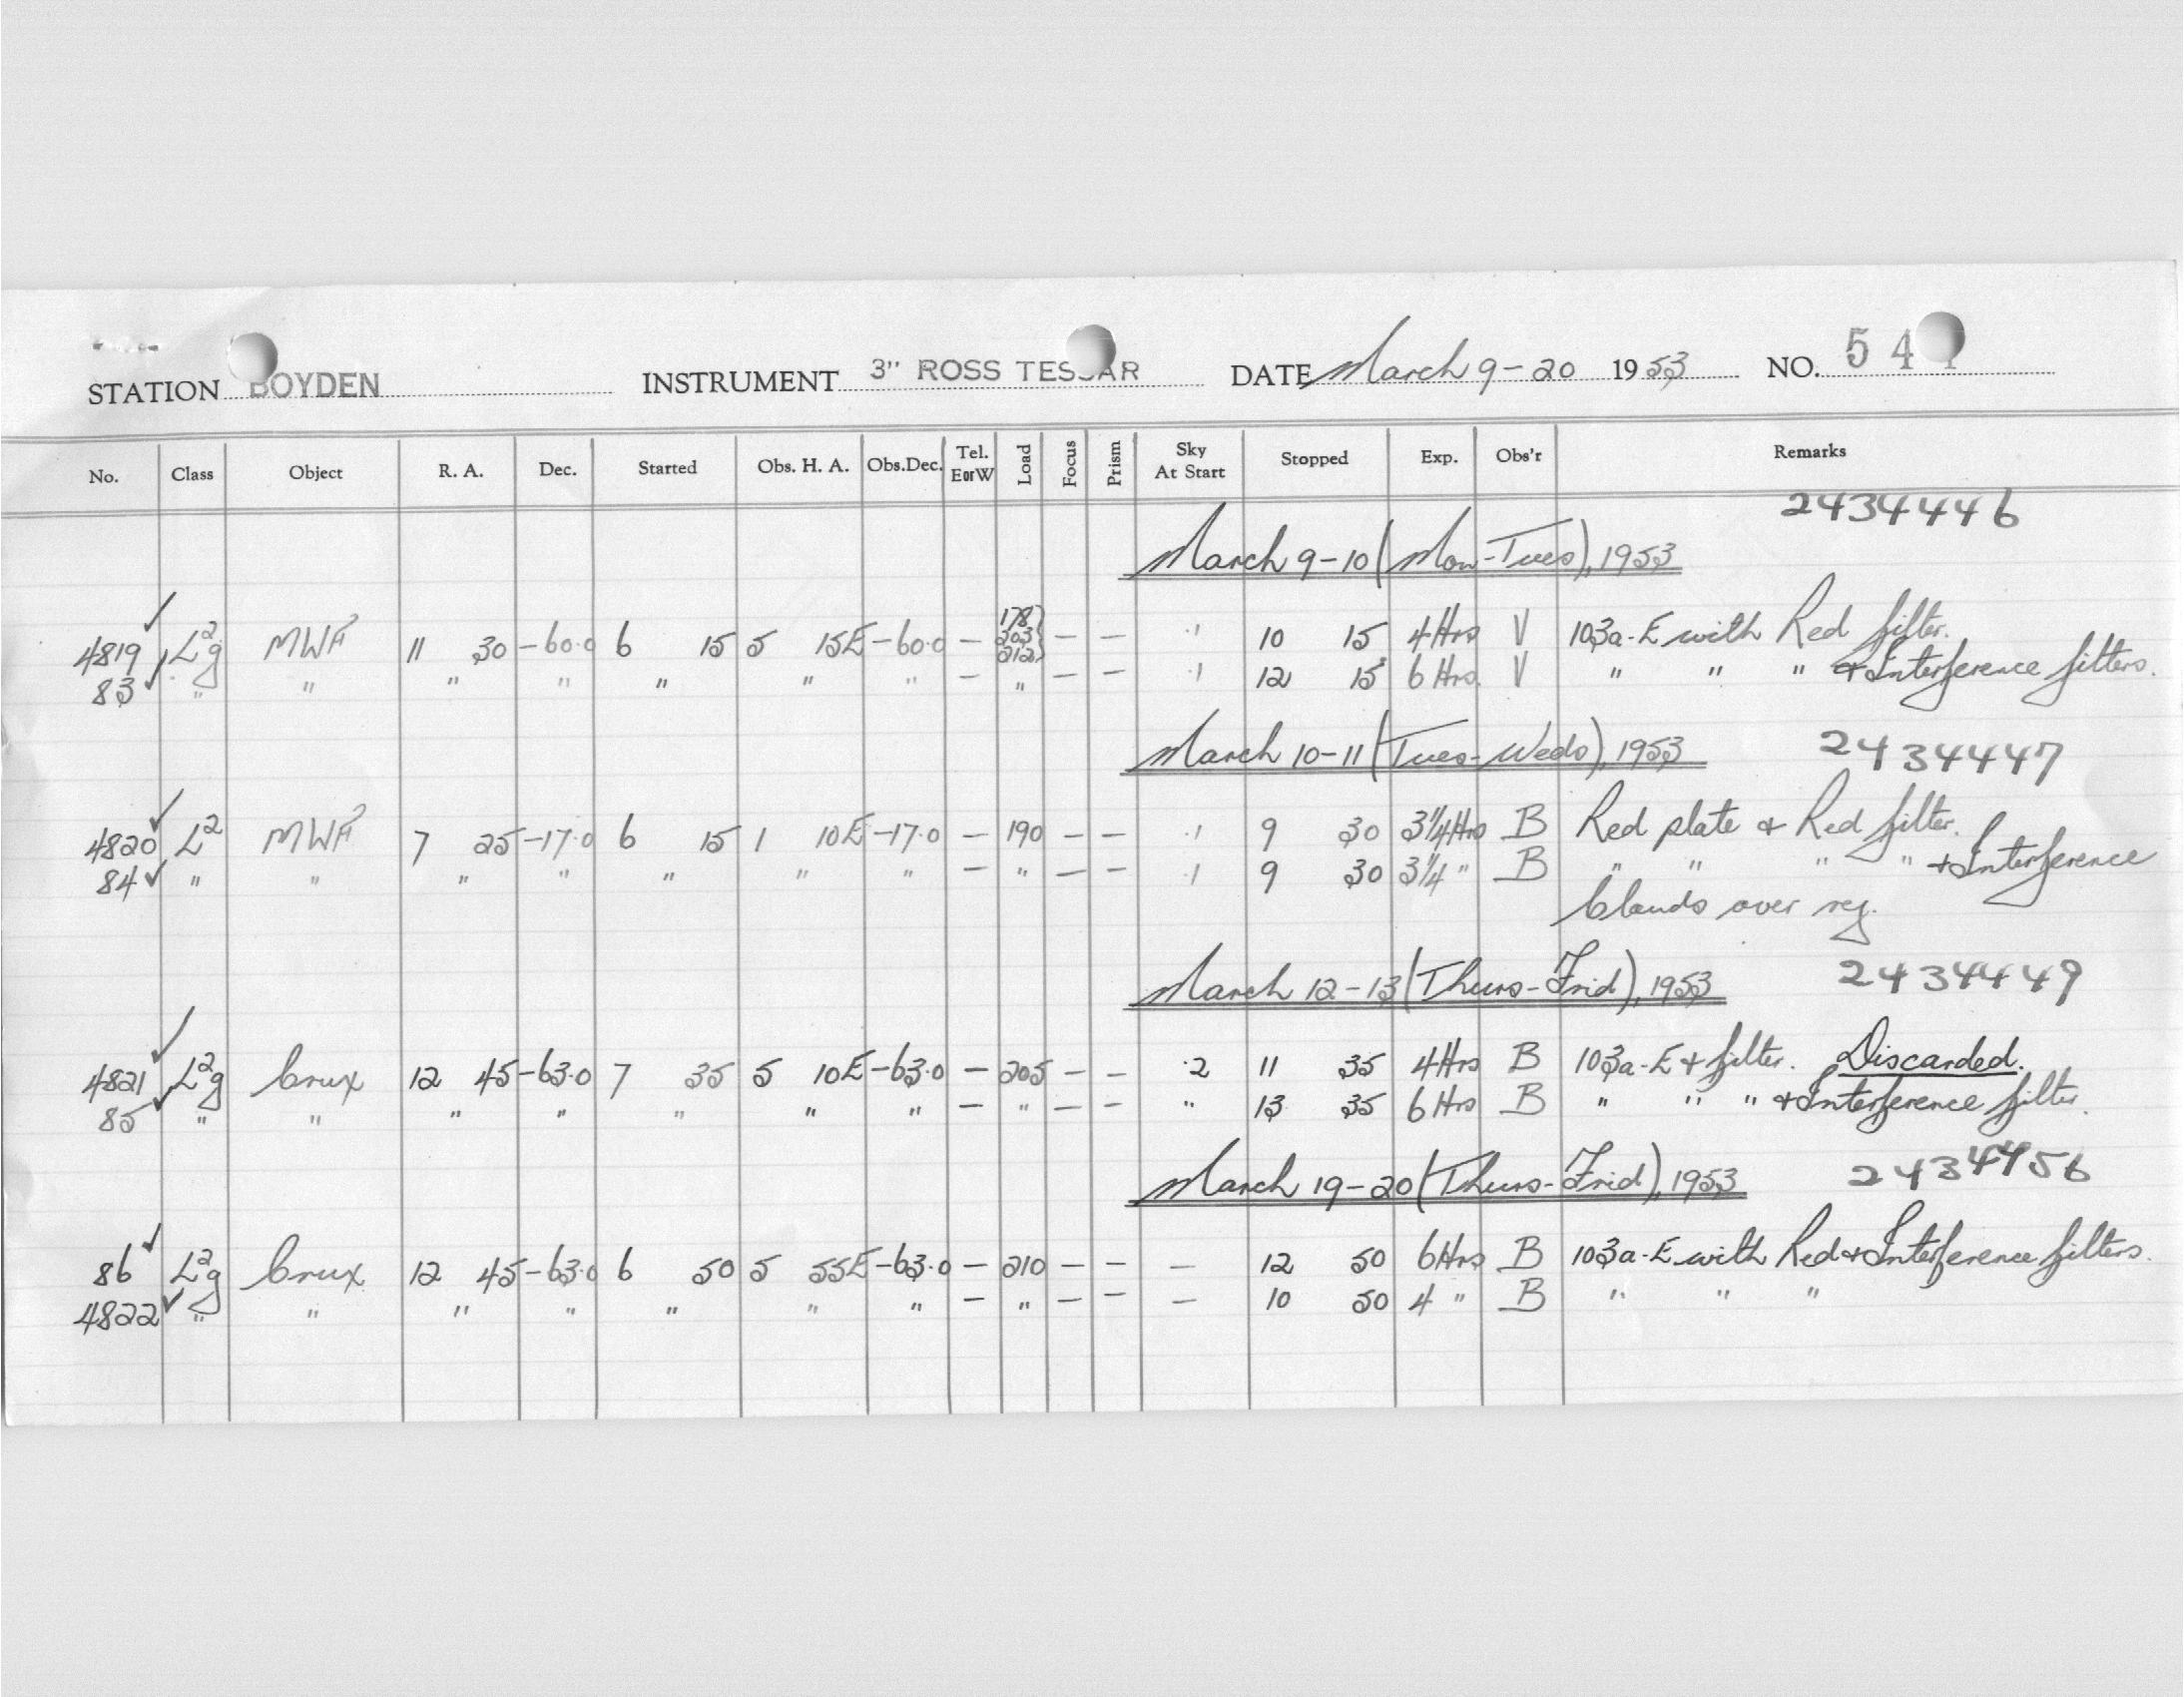 STATION BOYDEN INSTRUMENT 3" ROSS TESSAR DATE March 9-20 1953 NO. 54
No. Class Object R. A. Dec. Started Obs. H. A. Obs.Dec. Tel. EorW Load Focus Prism Sky At Start Stopped Exp. Obs'r Remarks
2434446
March 9-10 (Mon-Tues), 1953
4819 L²g MWF 11 30 -60.0 6 15 5 15E -60.0 — 178 203 212 — — .1 10 15 4 Hrs V 103a-E with Red filter.
83 " " " " " " " — " — — .1 12 15 6 Hrs. V " " " + Interference filters.
March 10-11 (Tues-Weds), 1953 2434447
4820 L² MWF 7 25 -17.0 6 15 1 10E -17.0 — 190 — — .1 9 30 3¼ Hrs B Red plate + Red filter.
84 " " " " " " " — " — — .1 9 30 3¼ " B " " " " + Interference
Clouds over reg.
March 12-13 (Thurs-Frid), 1953 2434449
4821 L²g Crux 12 45 -63.0 7 35 5 10E -63.0 — 205 — — .2 11 35 4 Hrs B 103a-E + filter. Discarded.
85 " " " " " " " — " — — " 13 35 6 Hrs B " " " + Interference filter.
March 19-20 (Thurs-Frid), 1953 2434456
86 L²g Crux 12 45 -63.0 6 50 5 55E -63.0 — 210 — — — 12 50 6 Hrs B 103a-E with Red + Interference filters.
4822 " " " " " " " — " — — — 10 50 4 " B " " "